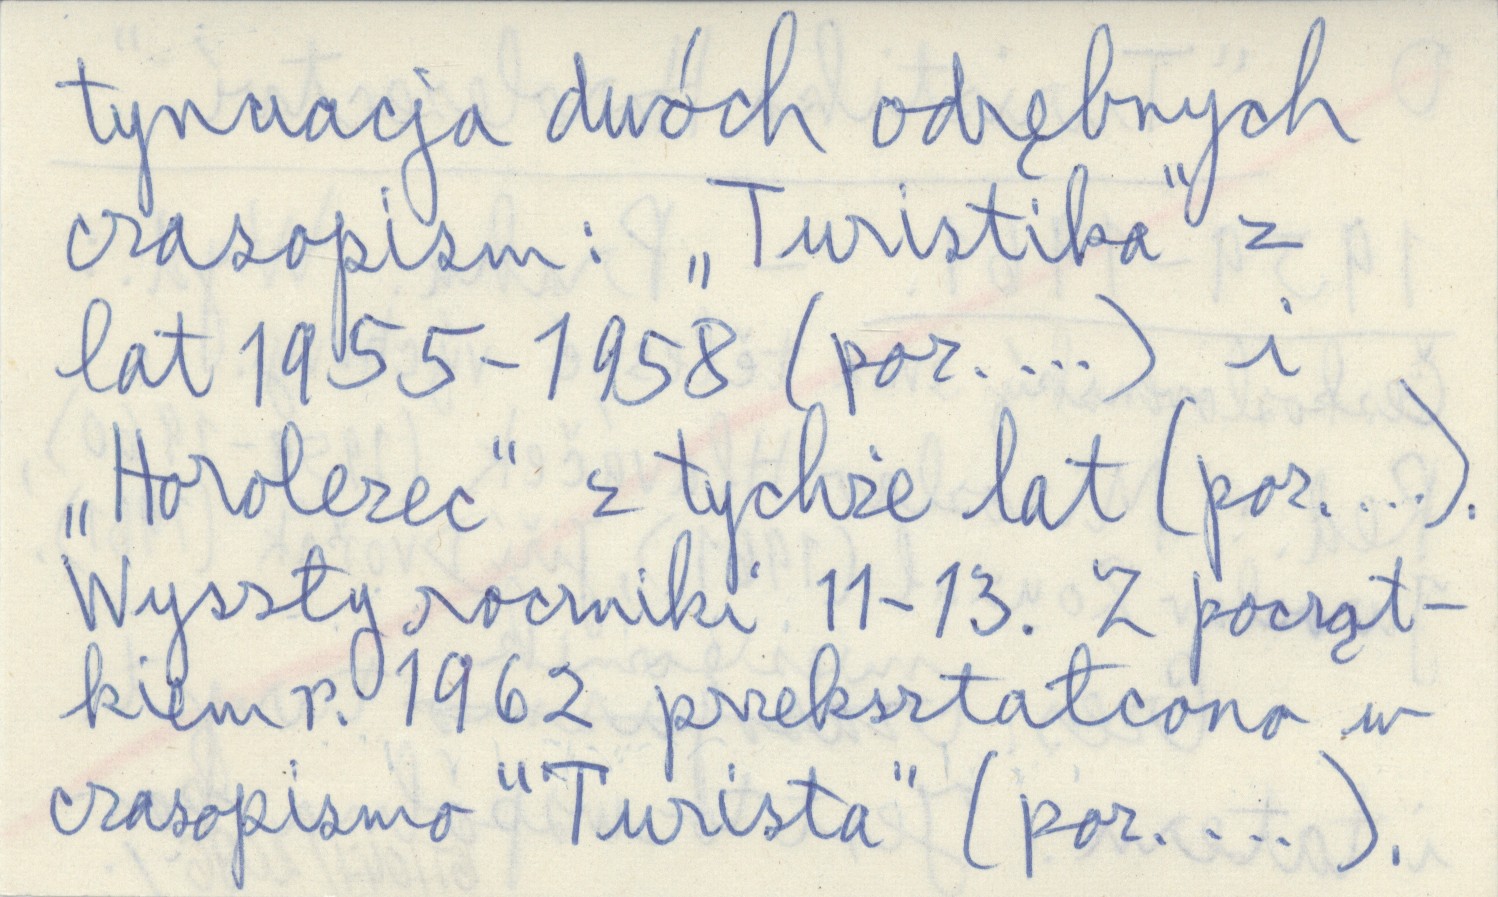 tynuacja dwóch odrębnych
czasopism: „Turistika" z
lat 1955-1958 (por. ...) i
„Horolezec" z tychże lat (por. ...).
Wyszły roczniki 11-13. Z począt-
kiem r. 1962 przekształcono w
czasopismo "Turista" (por. ....).